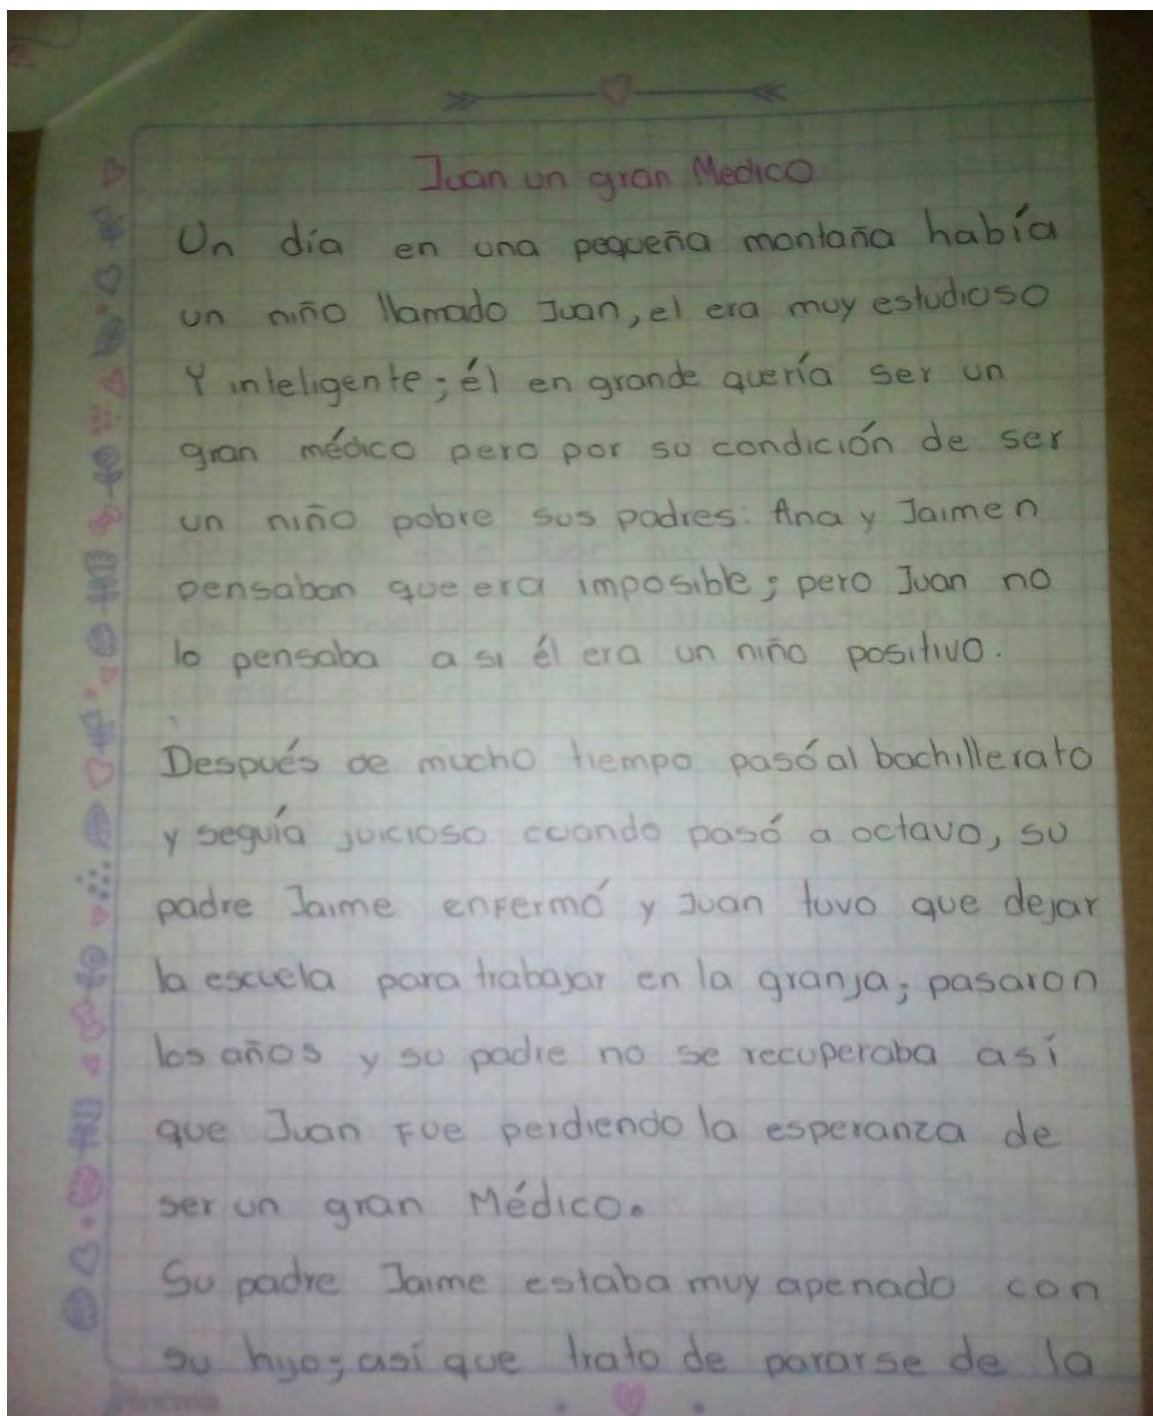 Juan un gran Medico
Un día en una pequeña montaña había
un niño llamado Juan, el era muy estudioso
Y inteligente; él en grande quería ser un
gran médico pero por su condición de ser
un niño pobre sus padres: Ana y Jaimen
pensaban que era imposible; pero Juan no
lo pensaba a si él era un niño positivo.
Después de mucho tiempo pasó al bachillerato
y seguía juicioso cuando pasó a octavo, su
padre Jaime enfermó y Juan tuvo que dejar
la escuela para trabajar en la granja; pasaron
los años y su padre no se recuperaba así
que Juan fue perdiendo la esperanza de
ser un gran Médico.
Su padre Jaime estaba muy apenado con
su hijo; así que trato de pararse de la